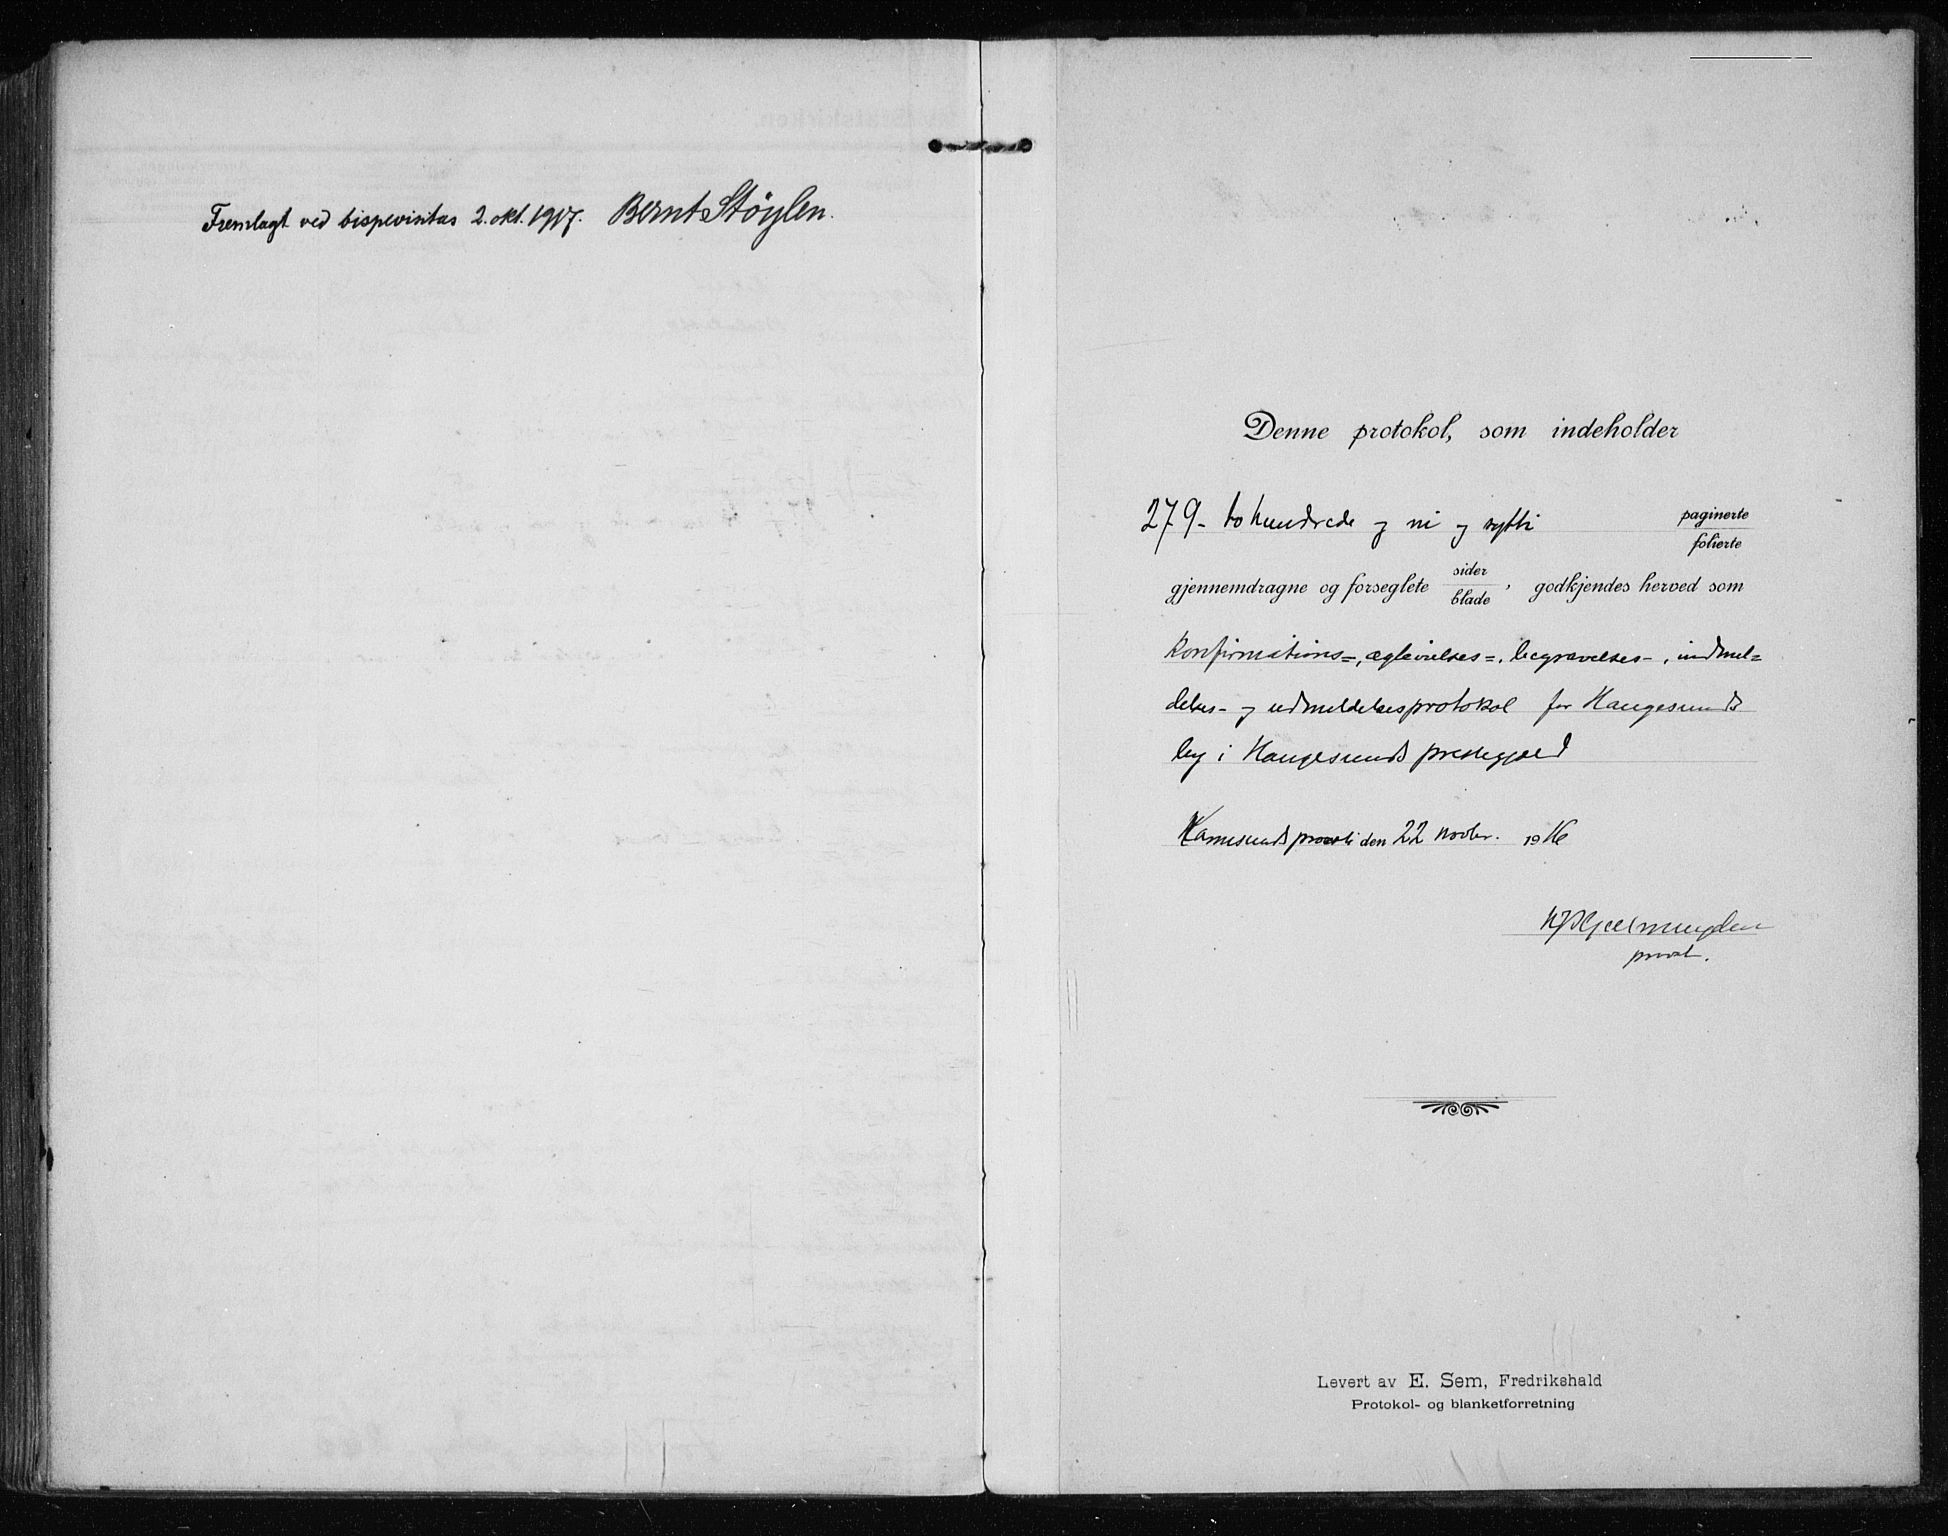 Fremlagt ved bispevisitas 2. okt. 1917. Bernt Støylen.
Denne protokol, som indeholder
279 - to hundrede og ni og sytti paginerte
folierte
gjennemdragne og forseglete sider
blade, godkjendes herved som
konfirmations=, egtevielses=, begravelses-, indmel=
delses- og udmeldelsesprotokol for Haugesunds
by i Haugesunds prestegjæld
Karmsunds prosti den 22 novbr. 1916
Hjelmungden
prost.
Levert av E. Sem, Fredrikshald
Protokol- og blanketforretning